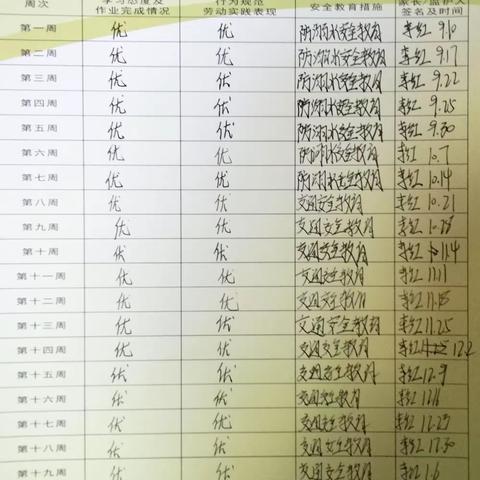 周次 学习态度及 行为规范 安全教育措施 家长/监护人
作业完成情况 劳动实践表现 签名及时间
第一周 优 优 防溺水安全教育 李红 9.10
第二周 优 优 防溺水安全教育 李红 9.17
第三周 优 优 防溺水安全教育 李红 9.22
第四周 优 优 防溺水安全教育 李红 9.25
第五周 优 优 防溺水安全教育 李红 9.30
第六周 优 优 防溺水安全教育 李红 10.7
第七周 优 优 防溺水安全教育 李红 10.14
第八周 优 优 交通安全教育 李红 10.21
第九周 优 优 交通安全教育 李红 10.28
第十周 优 优 交通安全教育 李红 11.4
第十一周 优 优 交通安全教育 李红 11.11
第十二周 优 优 交通安全教育 李红 11.18
第十三周 优 优 交通安全教育 李红 11.25
第十四周 优 优 交通安全教育 李红 12.2
第十五周 优 优 交通安全教育 李红 12.9
第十六周 优 优 交通安全教育 李红 12.16
第十七周 优 优 交通安全教育 李红 12.23
第十八周 优 优 交通安全教育 李红 12.30
第十九周 优 优 交通安全教育 李红 1.6